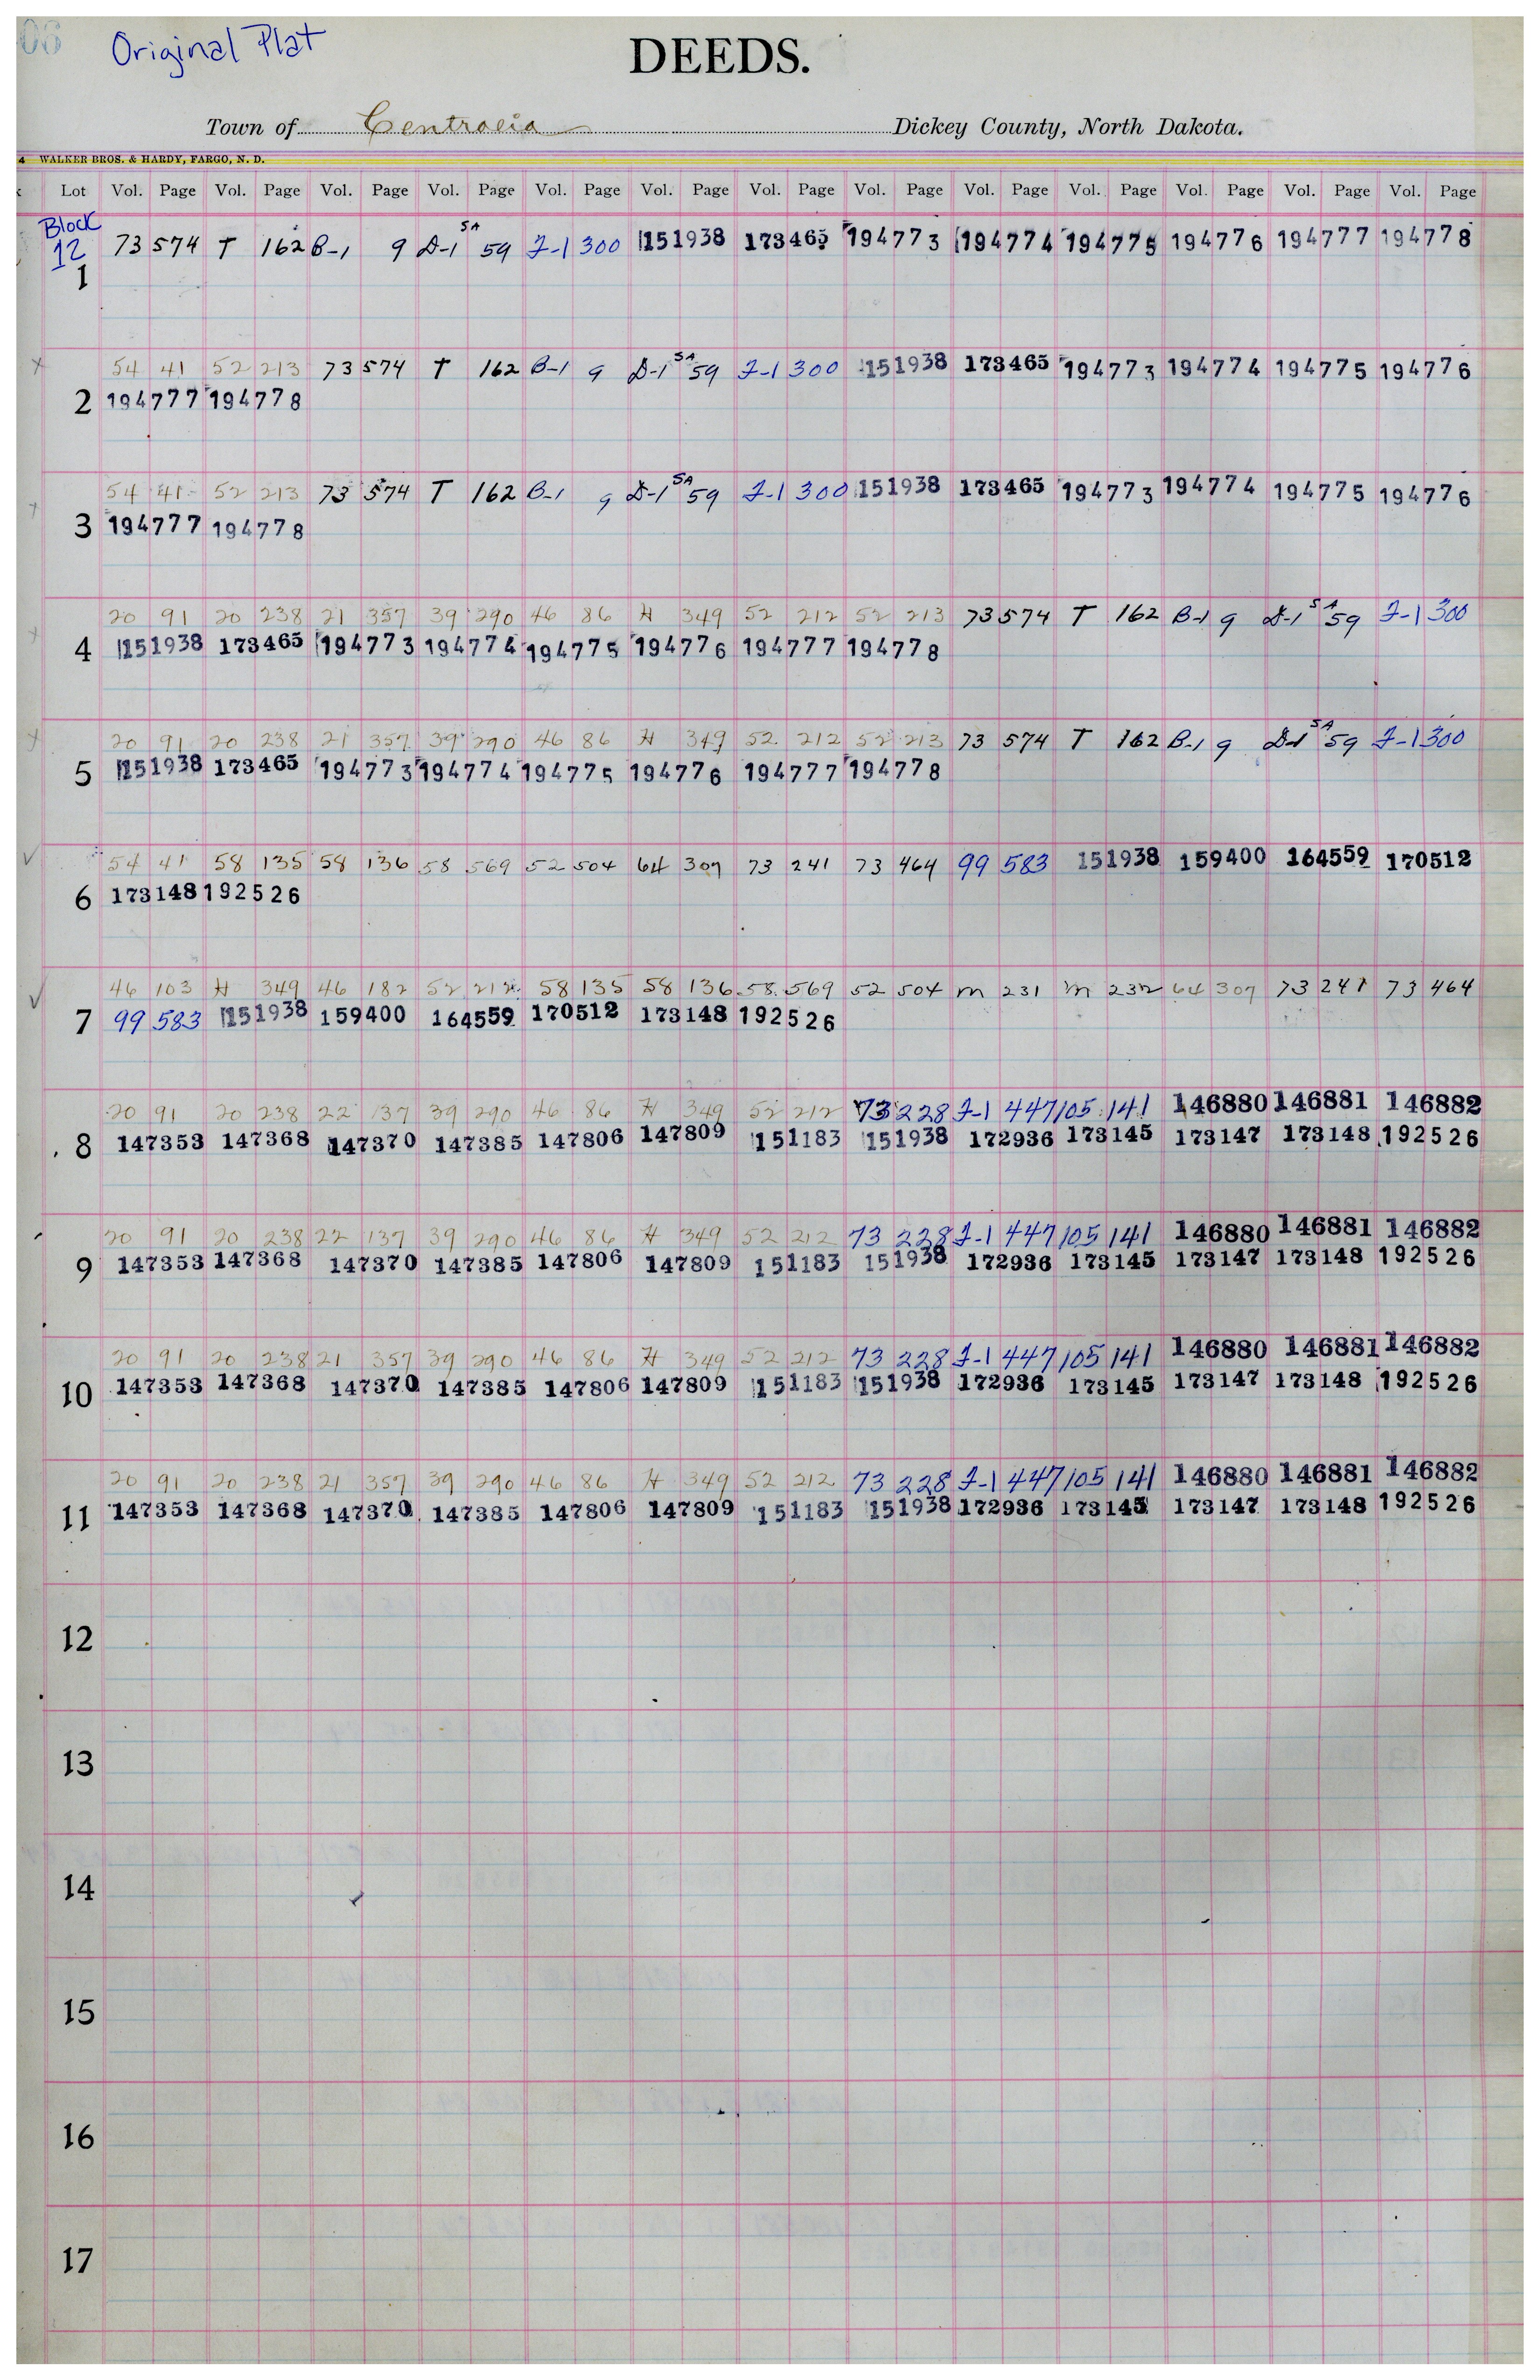 06 Original Plat
DEEDS.
Town of Centralia Dickey County, North Dakota.
4 WALKER BROS. & HARDY, FARGO, N. D.
k Lot Vol. Page Vol. Page Vol. Page Vol. Page Vol. Page Vol. Page Vol. Page Vol. Page Vol. Page Vol. Page Vol. Page Vol. Page Vol. Page
Block
12 73 574 T 162 B-1 9 D-1 SA 59 F-1 300 151938 173465 194773 194774 194775 194776 194777 194778
1
54 41 52 213 73 574 T 162 B-1 9 D-1 SA 59 F-1 300 151938 173465 194773 194774 194775 194776
2 194777 194778
54 41 52 213 73 574 T 162 B-1 9 D-1 SA 59 F-1 300 151938 173465 194773 194774 194775 194776
3 194777 194778
20 91 20 238 21 357 39 290 46 86 H 349 52 212 52 213 73 574 T 162 B-1 9 D-1 SA 59 F-1 300
4 151938 173465 194773 194774 194775 194776 194777 194778
20 91 20 238 21 357 39 290 46 86 H 349 52 212 52 213 73 574 T 162 B-1 9 D-1 SA 59 F-1 300
5 151938 173465 194773 194774 194775 194776 194777 194778
54 41 58 135 58 136 58 569 52 504 64 307 73 241 73 464 99 583 151938 159400 164559 170512
6 173148 192526
46 103 H 349 46 182 52 212 58 135 58 136 58 569 52 504 M 231 M 232 64 307 73 241 73 464
7 99 583 151938 159400 164559 170512 173148 192526
20 91 20 238 22 137 39 290 46 86 H 349 52 212 73 228 F-1 447 105 141 146880 146881 146882
8 147353 147368 147370 147385 147806 147809 151183 151938 172936 173145 173147 173148 192526
20 91 20 238 22 137 39 290 46 86 H 349 52 212 73 228 F-1 447 105 141 146880 146881 146882
9 147353 147368 147370 147385 147806 147809 151183 151938 172936 173145 173147 173148 192526
20 91 20 238 21 357 39 290 46 86 H 349 52 212 73 228 F-1 447 105 141 146880 146881 146882
10 147353 147368 147370 147385 147806 147809 151183 151938 172936 173145 173147 173148 192526
20 91 20 238 21 357 39 290 46 86 H 349 52 212 73 228 F-1 447 105 141 146880 146881 146882
11 147353 147368 147370 147385 147806 147809 151183 151938 172936 173145 173147 173148 192526
12
13
14
15
16
17